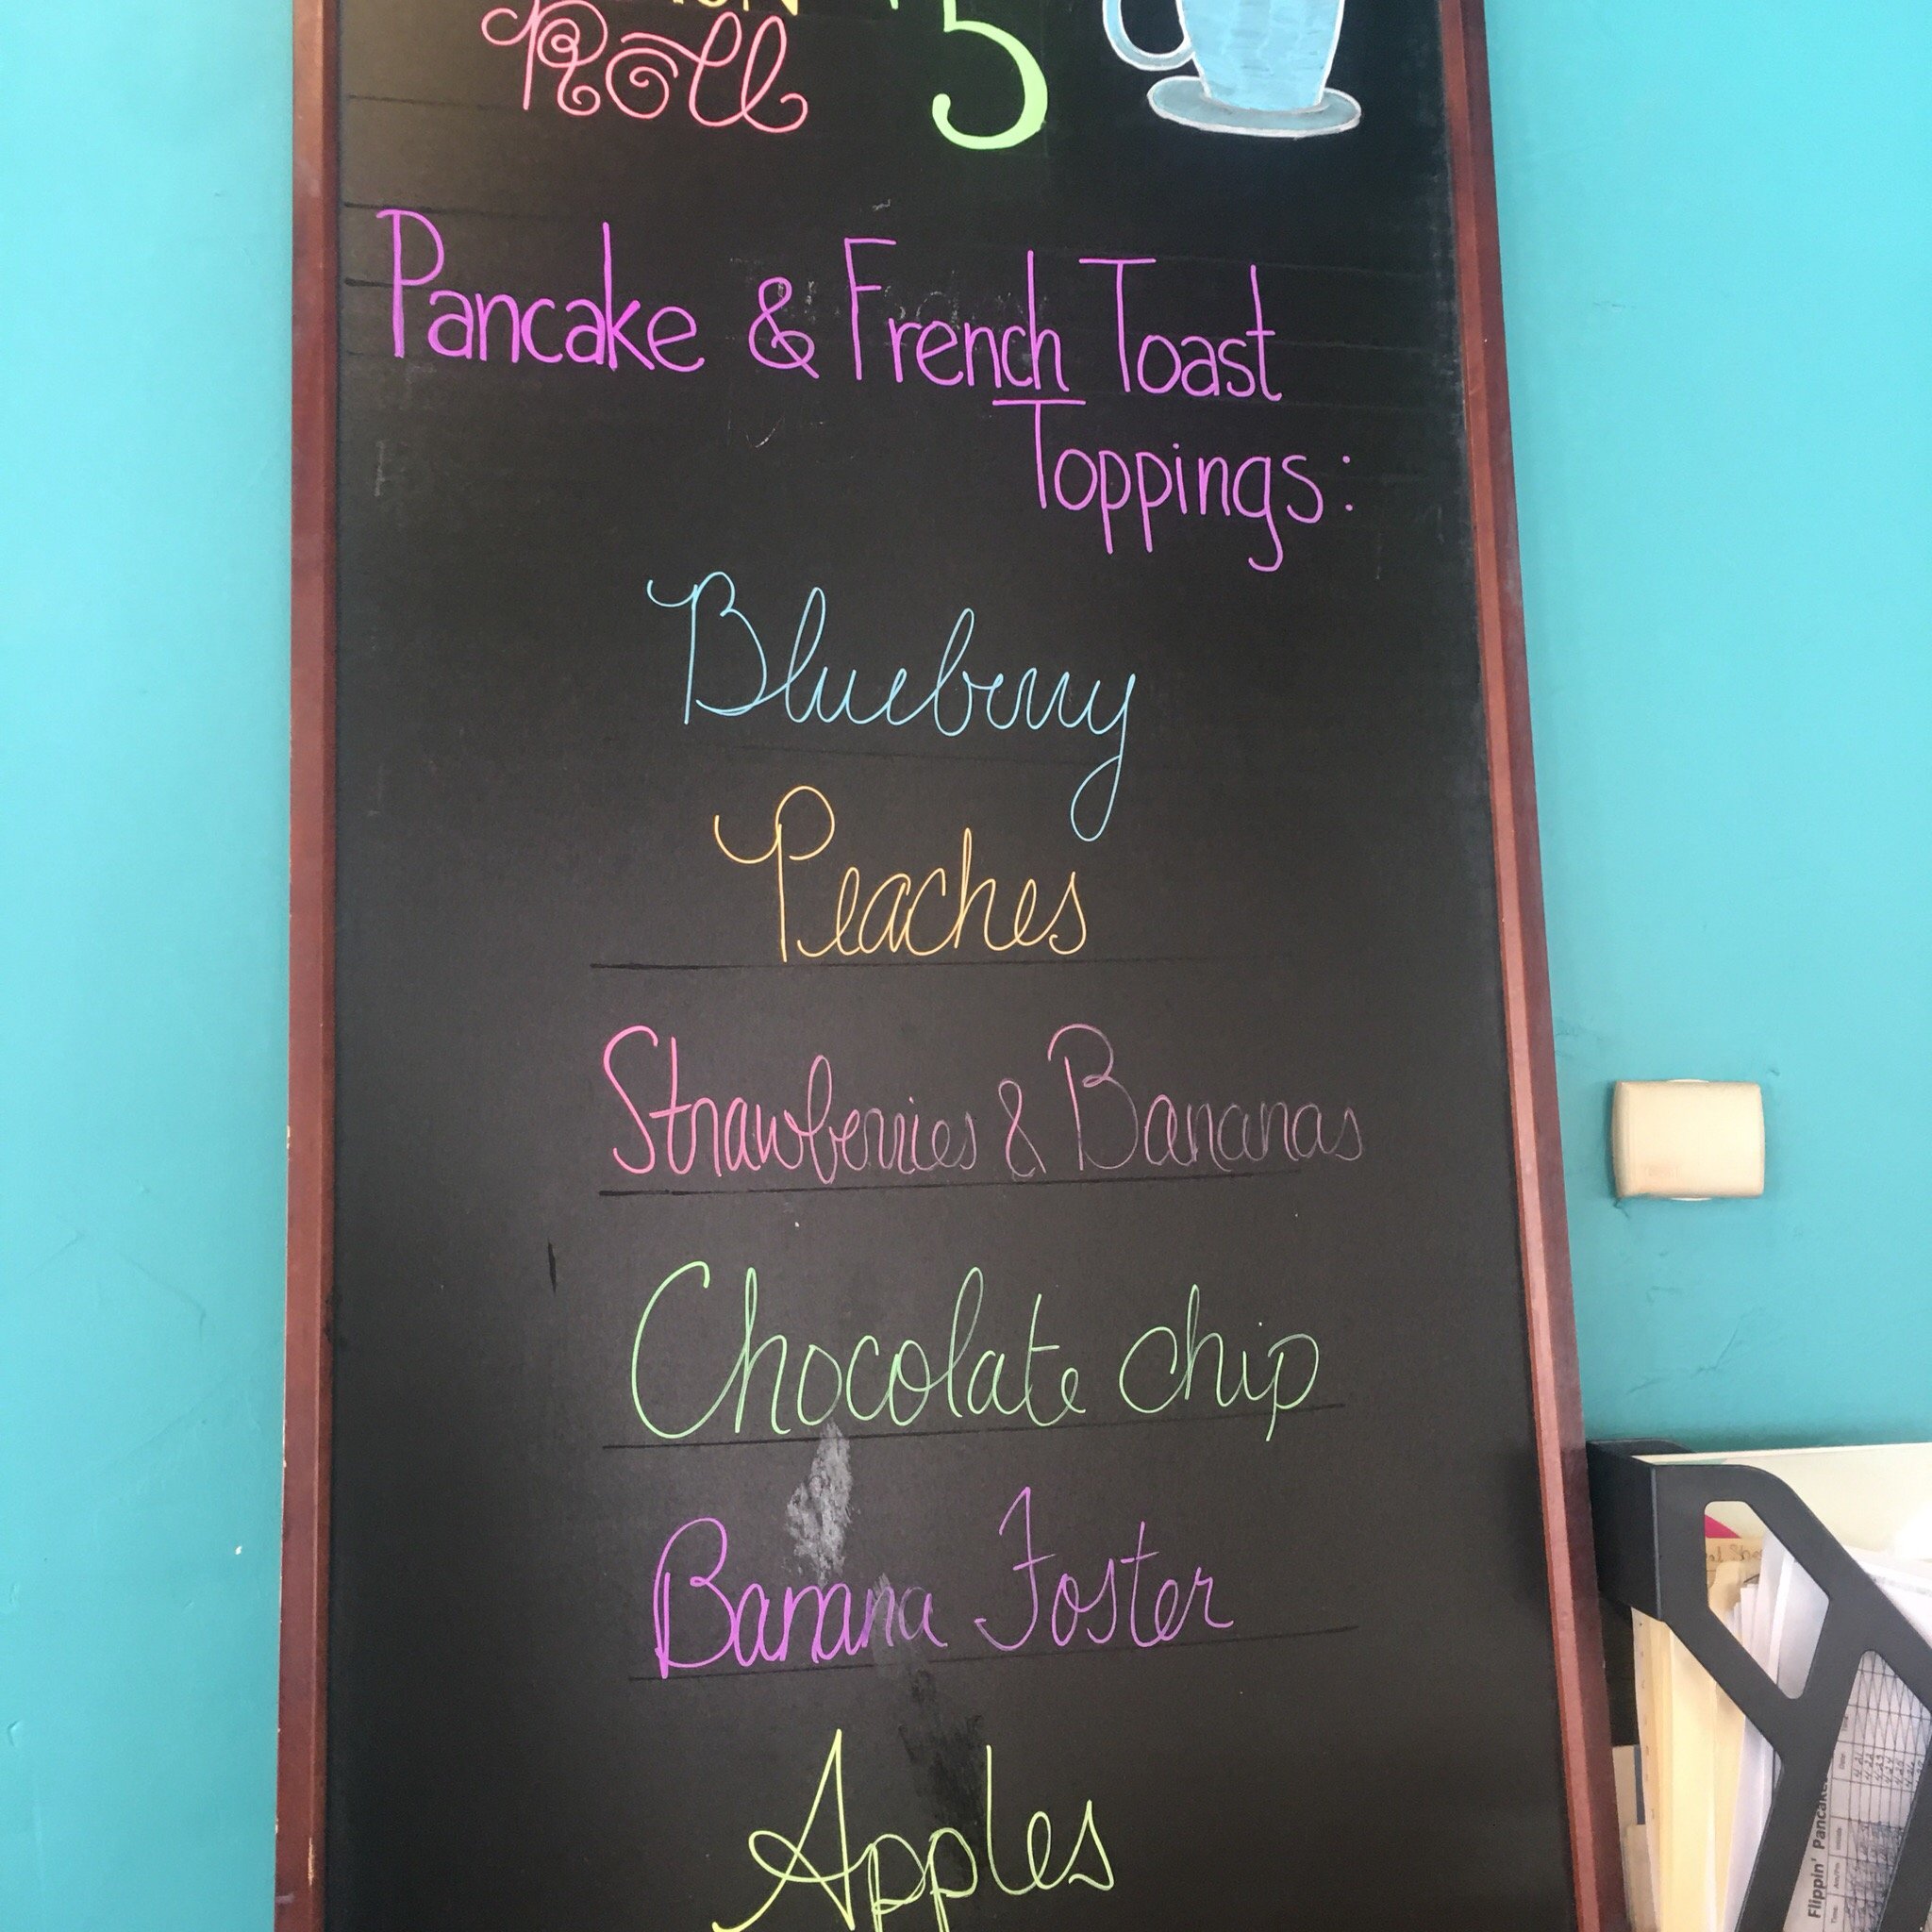 Roll
5
Pancake & French Toast
Toppings:
Blueberry
Peaches
Strawberries & Bananas
Chocolate chip
Banana Foster
Apples
Flippin' Pancakes